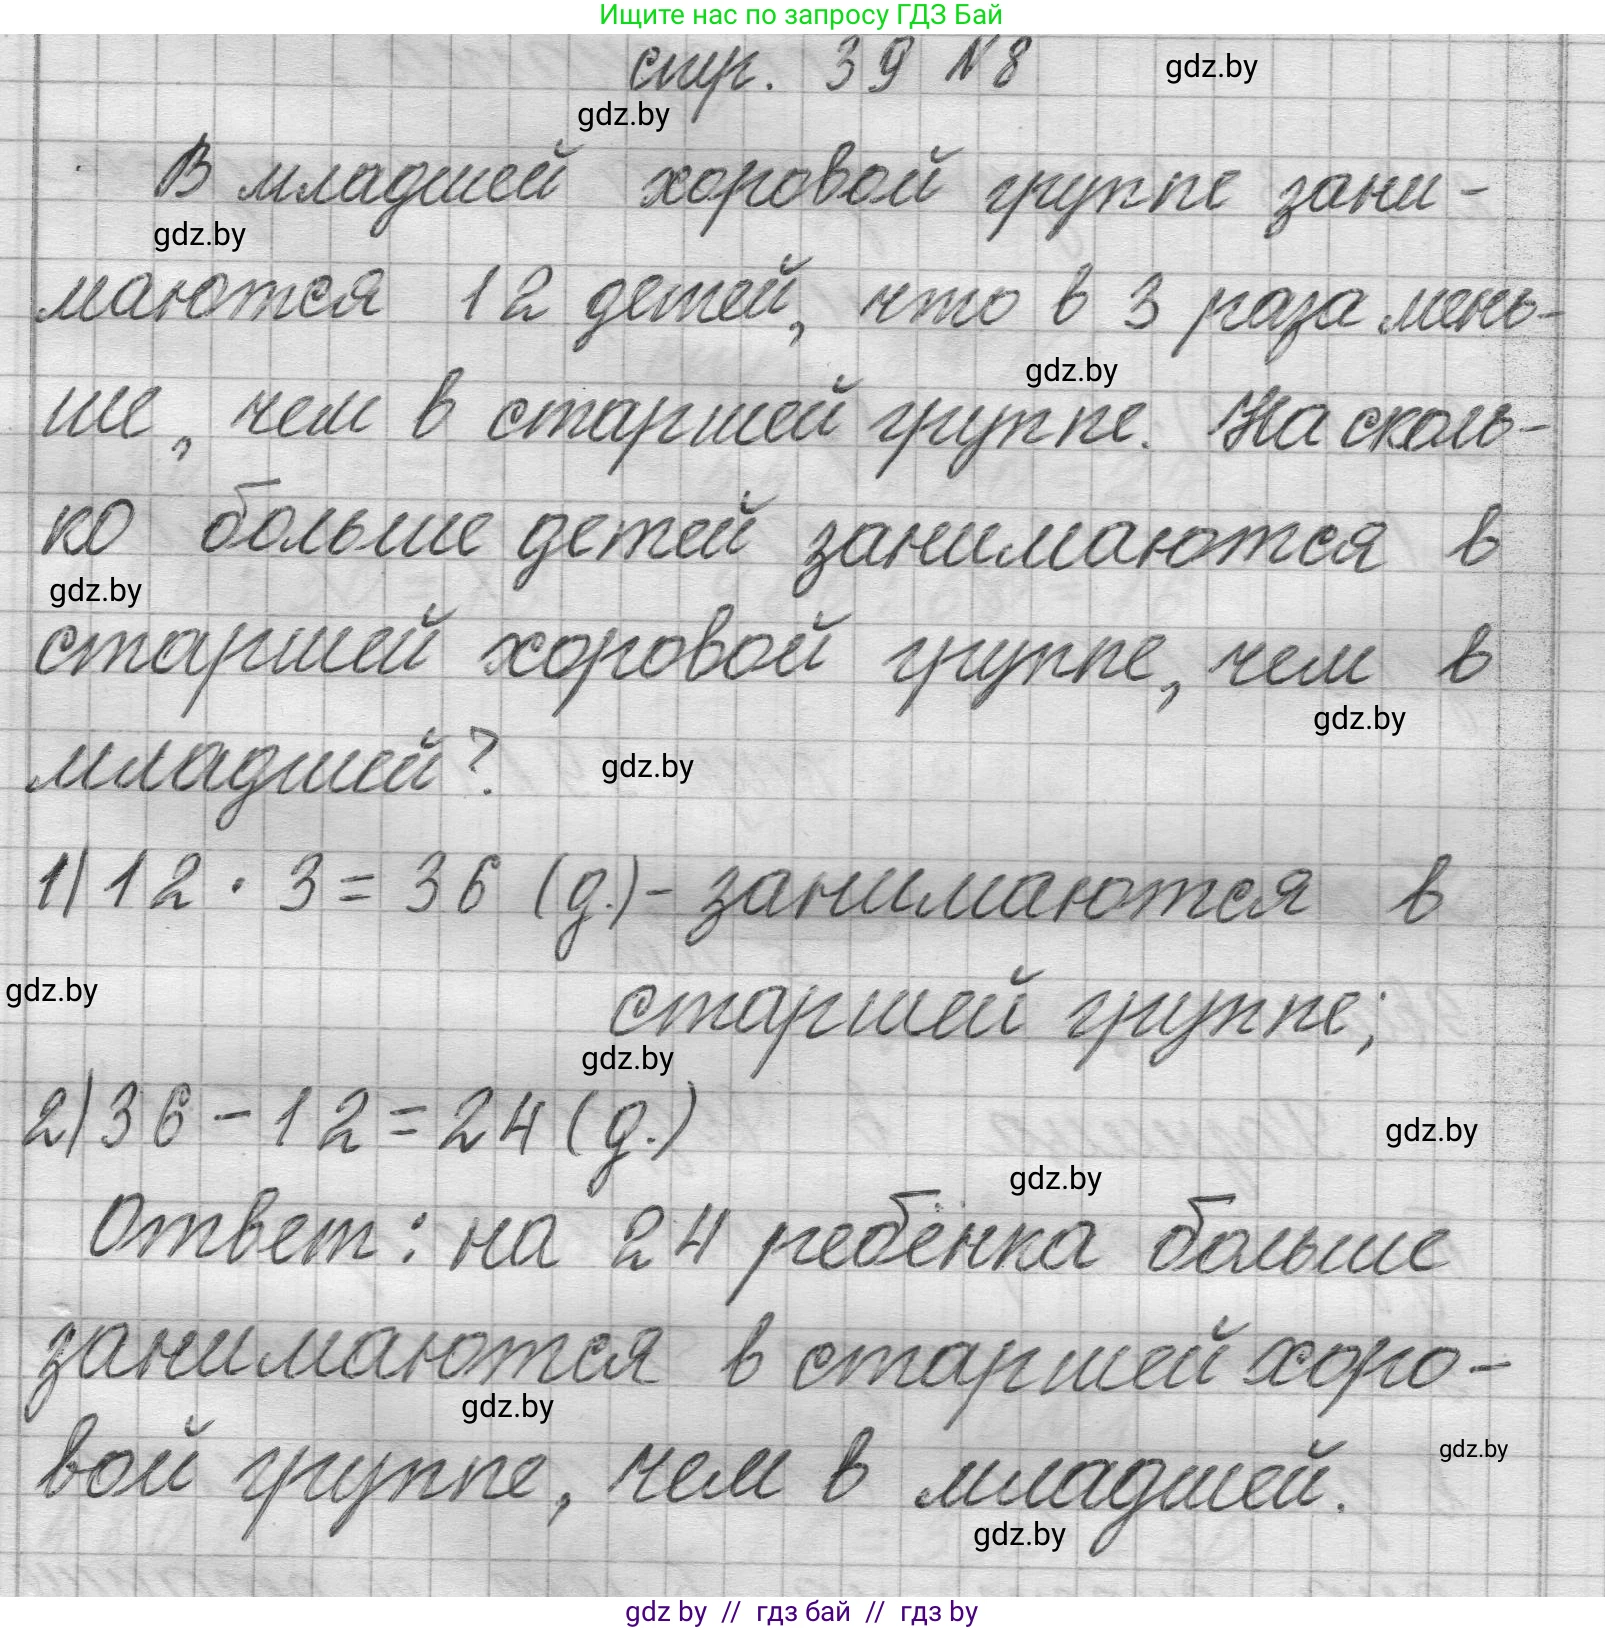 Ищите нас по запросу ГДЗ Бай
стр. 39 №8
gdz.by
gdz.by
В младшей хоровой группе зани-
gdz.by
маются 12 детей, что в 3 раза мень-
gdz.by
ше, чем в старшей группе. На сколь-
ко больше детей занимаются в
gdz.by
старшей хоровой группе, чем в
gdz.by
младшей?
gdz.by
1) 12 · 3 = 36 (д.) - занимаются в
gdz.by
старшей группе;
gdz.by
2) 36 - 12 = 24 (д.)
gdz.by
gdz.by
Ответ: на 24 ребёнка больше
занимаются в старшей хоро-
gdz.by
вой группе, чем в младшей.
gdz.by
gdz.by
gdz by // гдз бай // гдз by